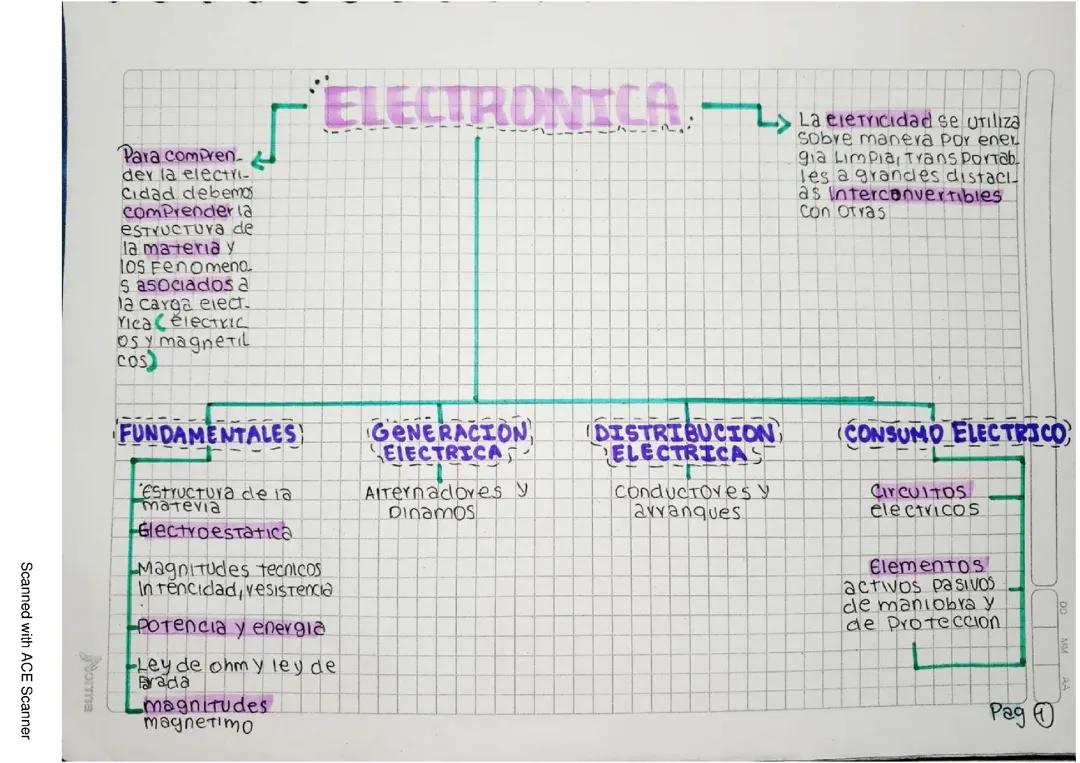 ELECTRONICA
Para compren-
der la electri-
cidad debemos
comprender la
estructura de
la materia y
los fenomeno-
s asociados a
la carga elect-
rica (electric
os y magnetil
cos)
La eletricidad se utiliza
sobre manera por ener-
gia Limpia, Transportab-
les a grandes distaci-
as interconvertibles
con otras
FUNDAMENTALES
Estructura de la
materia
Electroestatica
Magnitudes tecnicos
Intencidad, resistencia
Potencia y energia
Ley de ohm y ley de
farada
magnitudes
magnetimo
GENERACION
ELECTRICA
Alternadores y
Dinamos
DISTRIBUCION
ELECTRICA
Conductores y
arranques
CONSUMO ELECTRICO
Circuitos
electricos
Elementos
activos pasivos
de maniobra y
de Proteccion
Pag 1
Norma
DD MM AA
Scanned with ACE Scanner